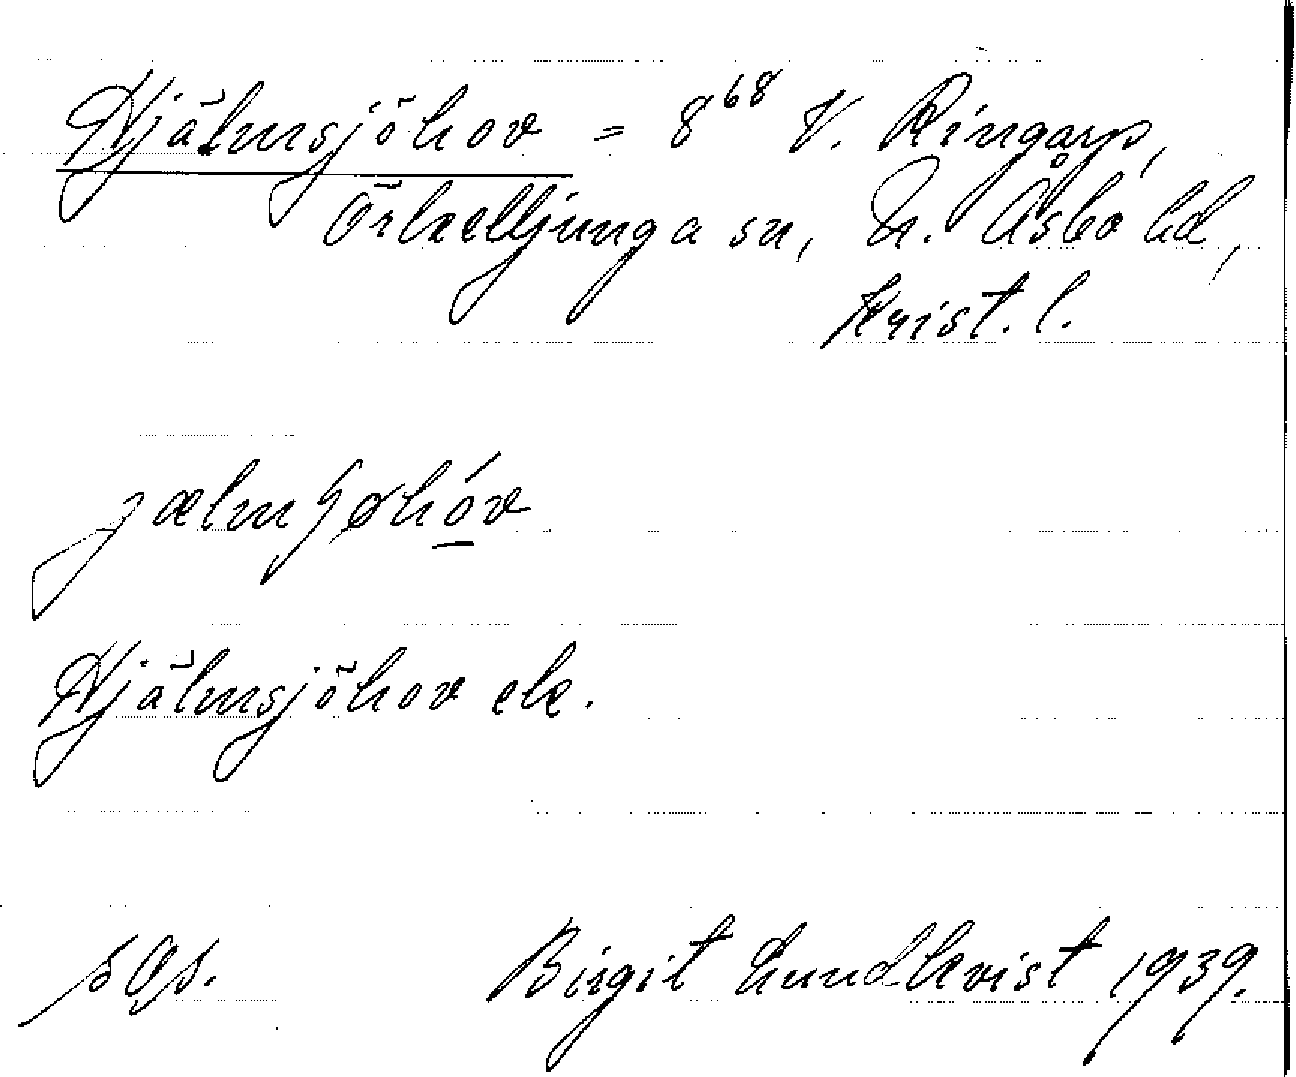 Hjälmsjöhov = 8⁶⁸ V. Ringarp,
Örkelljunga sn, N. Åsbo hd,
Krist. l.
jælmʃøhóv
Hjälmsjöhov ek.
Birgit Lundkvist 1939.